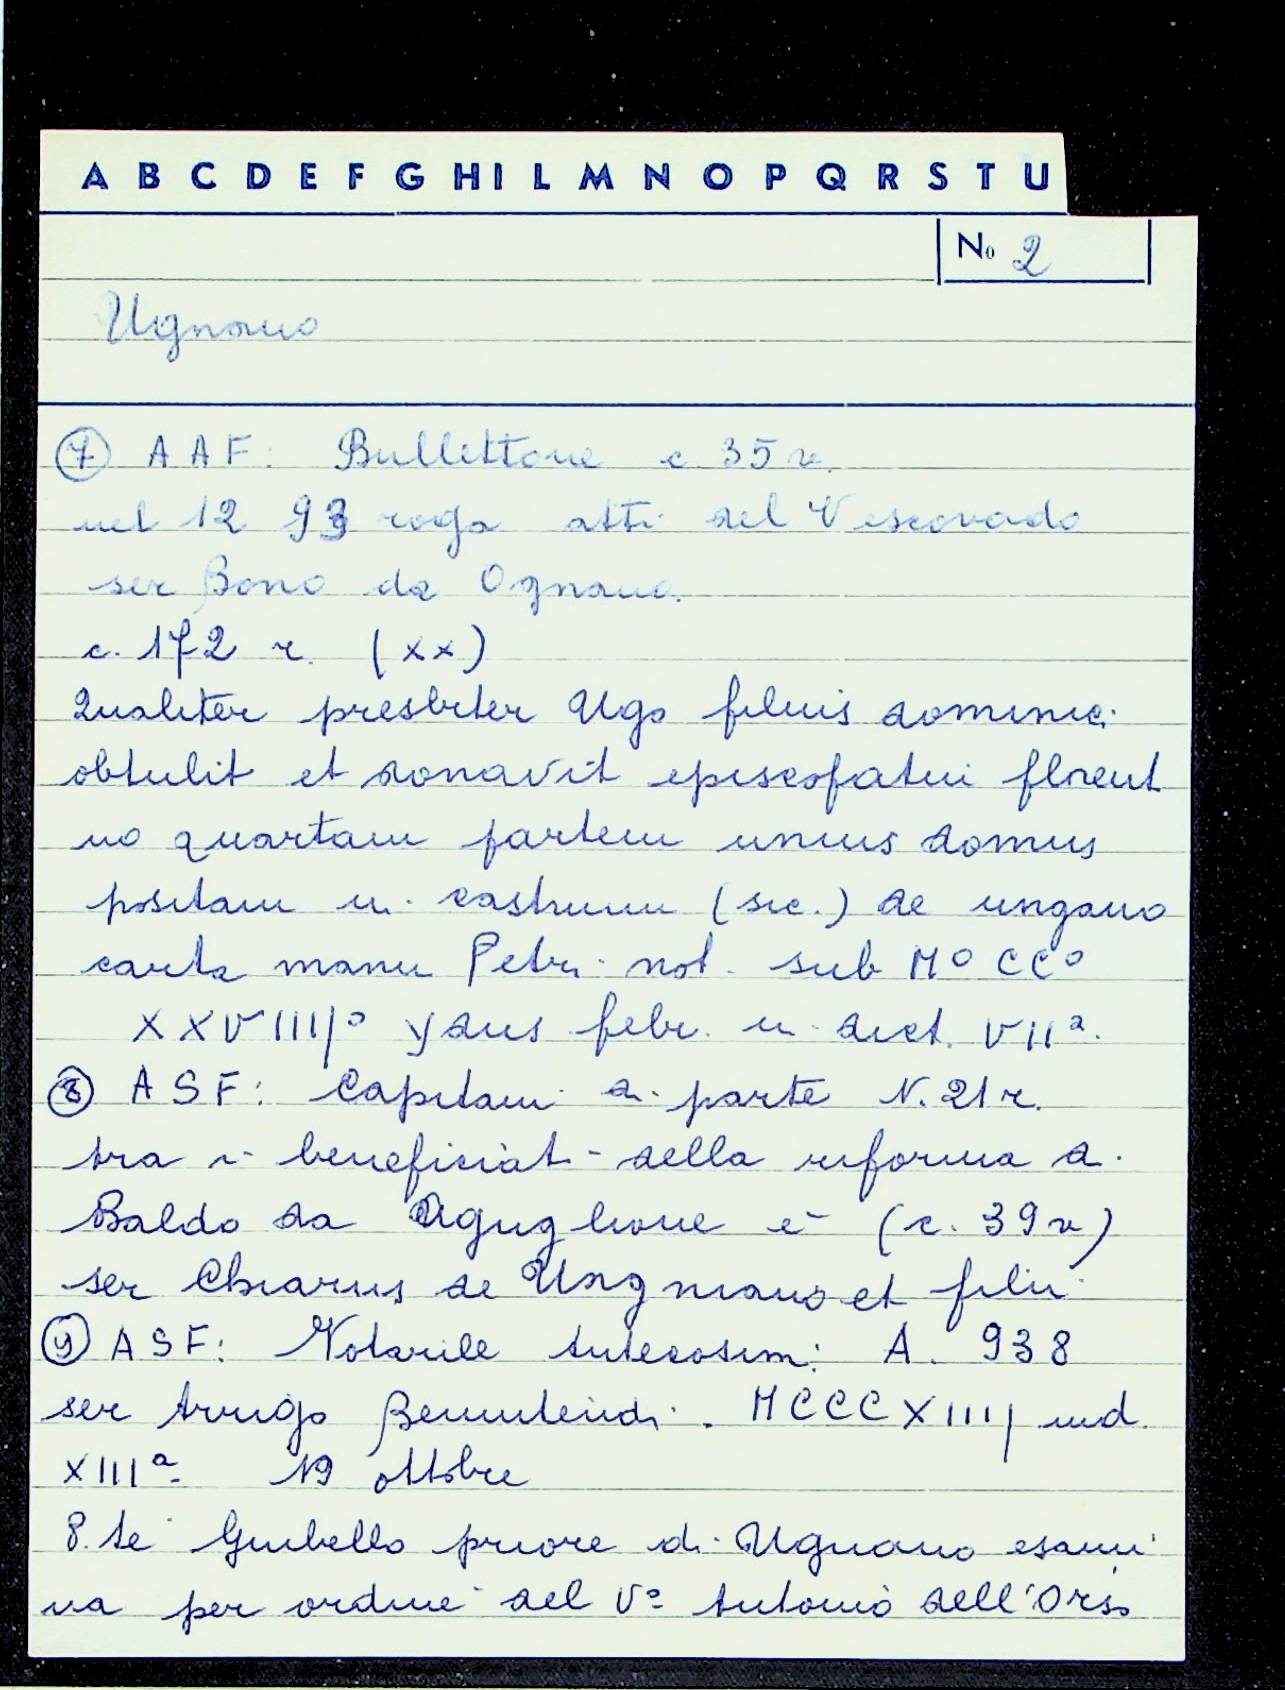 A B C D E F G H I L M N O P Q R S T U
No 2
Ugnano
7 A A F: Bullettone c. 35 v.
nel 1293 roga atti del Vescovado
ser Bono da Ognano.
c. 172 r. (xx)
Qualiter presbiter Ugo filius dominici
obtulit et donavit episcopatui florent
no quartam partem unius domus
positam in castrum (sic.) de ungano
carta manu Petri not. sub M° CC°
XXVIIII° ydus febr. in dict. VIIa.
8 A S F: Capitani di parte N. 21 r.
tra i beneficiati della riforma di
Baldo da Aguglione è (c. 39 v)
ser Chiarus de Ungniano et filii
9 A S F: Notarile Antecosim: A. 938
ser Arrigo Benintendi. MCCCXIIII ind.
XIIIa. 19 ottobre
P. te Giubello priore di Ugnano esami
na per ordine del Vo Antonio dell'Orso